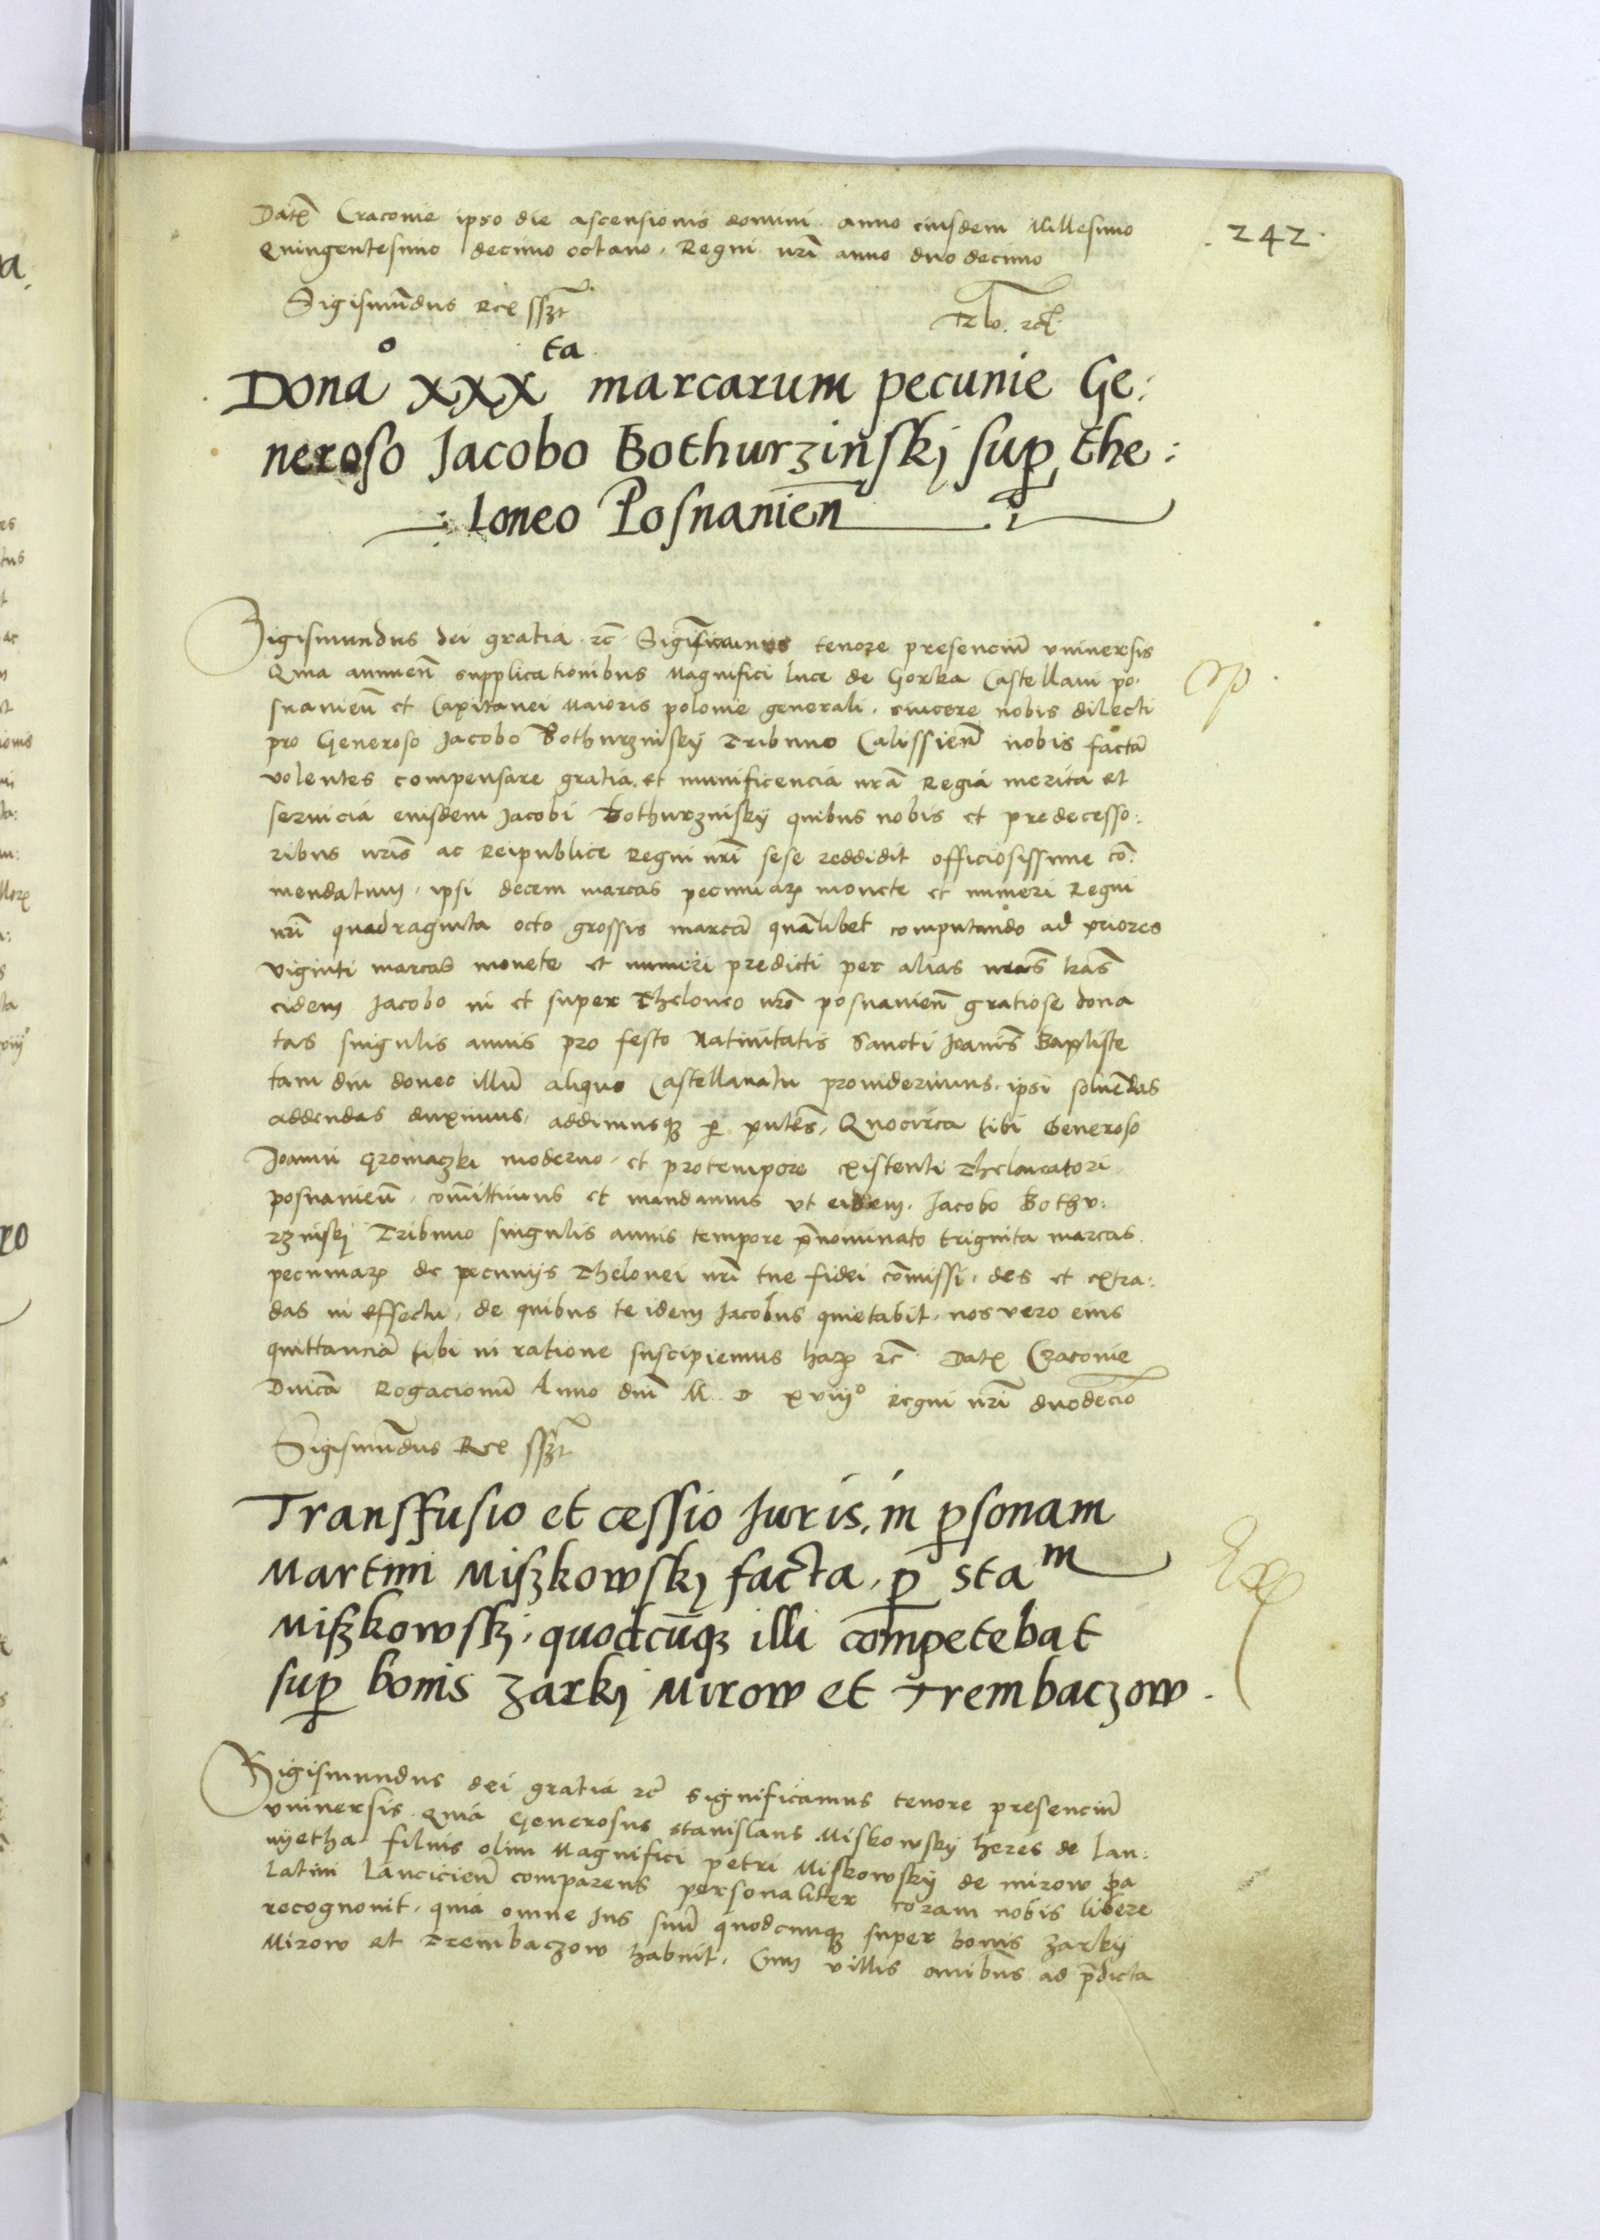 Datũ Cracovie ipso die ascensionis domini anno eiusdem Millesimo
Quingentesimo decimo octavo, Regni nr̃i anno duodecimo
.242.
Sigismũdus Rex sszt
Donao XXXta marcarum pecunie Ge:
neroso Jacobo Bothurzinskj sup the:
loneo Posnanien̄
Sigismundus dei gratia ꝛc̃ Significamus tenore presenciũ universis
Quia annuen̄ supplicationibus Magnifici luce de Gorka Castellani po:
snanien̄ et Capitanei Maioris polonie generali, sincere nobis dilecti
pro Generoso Jacobo Bothurzinskÿ Tribuno Calissien̄ nobis factã
volentes compensare gratia et munificencia nr̃a Regia merita et
servicia eiusdem Jacobi Bothurzinskÿ quibus nobis et predecesso:
ribus nr̃is ac Reipublice Regni nr̃i sese reddidit officiosissime cõ:
mendatum, ipsi decem marcas pecuniaꝝ monete et numeri Regni
nr̃i quadraginta octo grossis marcã quãlibet computando ad priores
viginti marcas monete et numeri predicti per alias nr̃as lr̃as
eidem Jacobo in et super Theloneo nr̃o posnanien̄ gratiose dona
tas singulis annis pro festo Nativitatis Sancti Joañis Baptiste
tam diu donec illũ aliquo Castellanatu providerimus, ipsi solvẽdas
addendas duximus, addimusqꝫ ꝑ pñtes, Quocirca tibi Generoso
Joanni Gromaczki moderno, et protempore existenti Theloneatori
posnanien̄, com̃ittimus et mandamus ut eidem Jacobo Bothu:
rzinskj Tribuno singulis annis tempore p̃nominato triginta marcas
pecuniaꝝ de pecunijs Thelonei nr̃i tue fidei cõmissi, des et extra:
das in effectu, de quibus te idem Jacobus quietabit, nos vero eius
quittanciã tibi in ratione suscipiemus haꝝ ꝛc̃ Datũ Cracovie
Dnicã Rogacionũ Anno dnĩ M D xviijo Regni nr̃i duodecĩo
Sigismũdus Rex sszt
Transffusio et cessio Juris, in ꝑsonam
Martini Miszkowskj facta, ꝑ stam
Miszkowskj, quodcũqꝫ illi competebat
suꝑ bonis Zarkj Mirow et Trembaczow.
Sigismundus dei gratia ꝛc̃ significamus tenore presenciũ
universis Quia Generosus Stanislaus Miskowskÿ heres de Lan:
nÿetha filius olim Magnifici petri Miskowskÿ de mirow pa
latini Lancicien̄ comparens personaliter coram nobis libere
recognovit, quia omne Jus suũ quodcunqꝫ super bonis Zarkÿ
Mirow et Trembaczow habuit, Cum villis om̃ibus ad p̃dicta